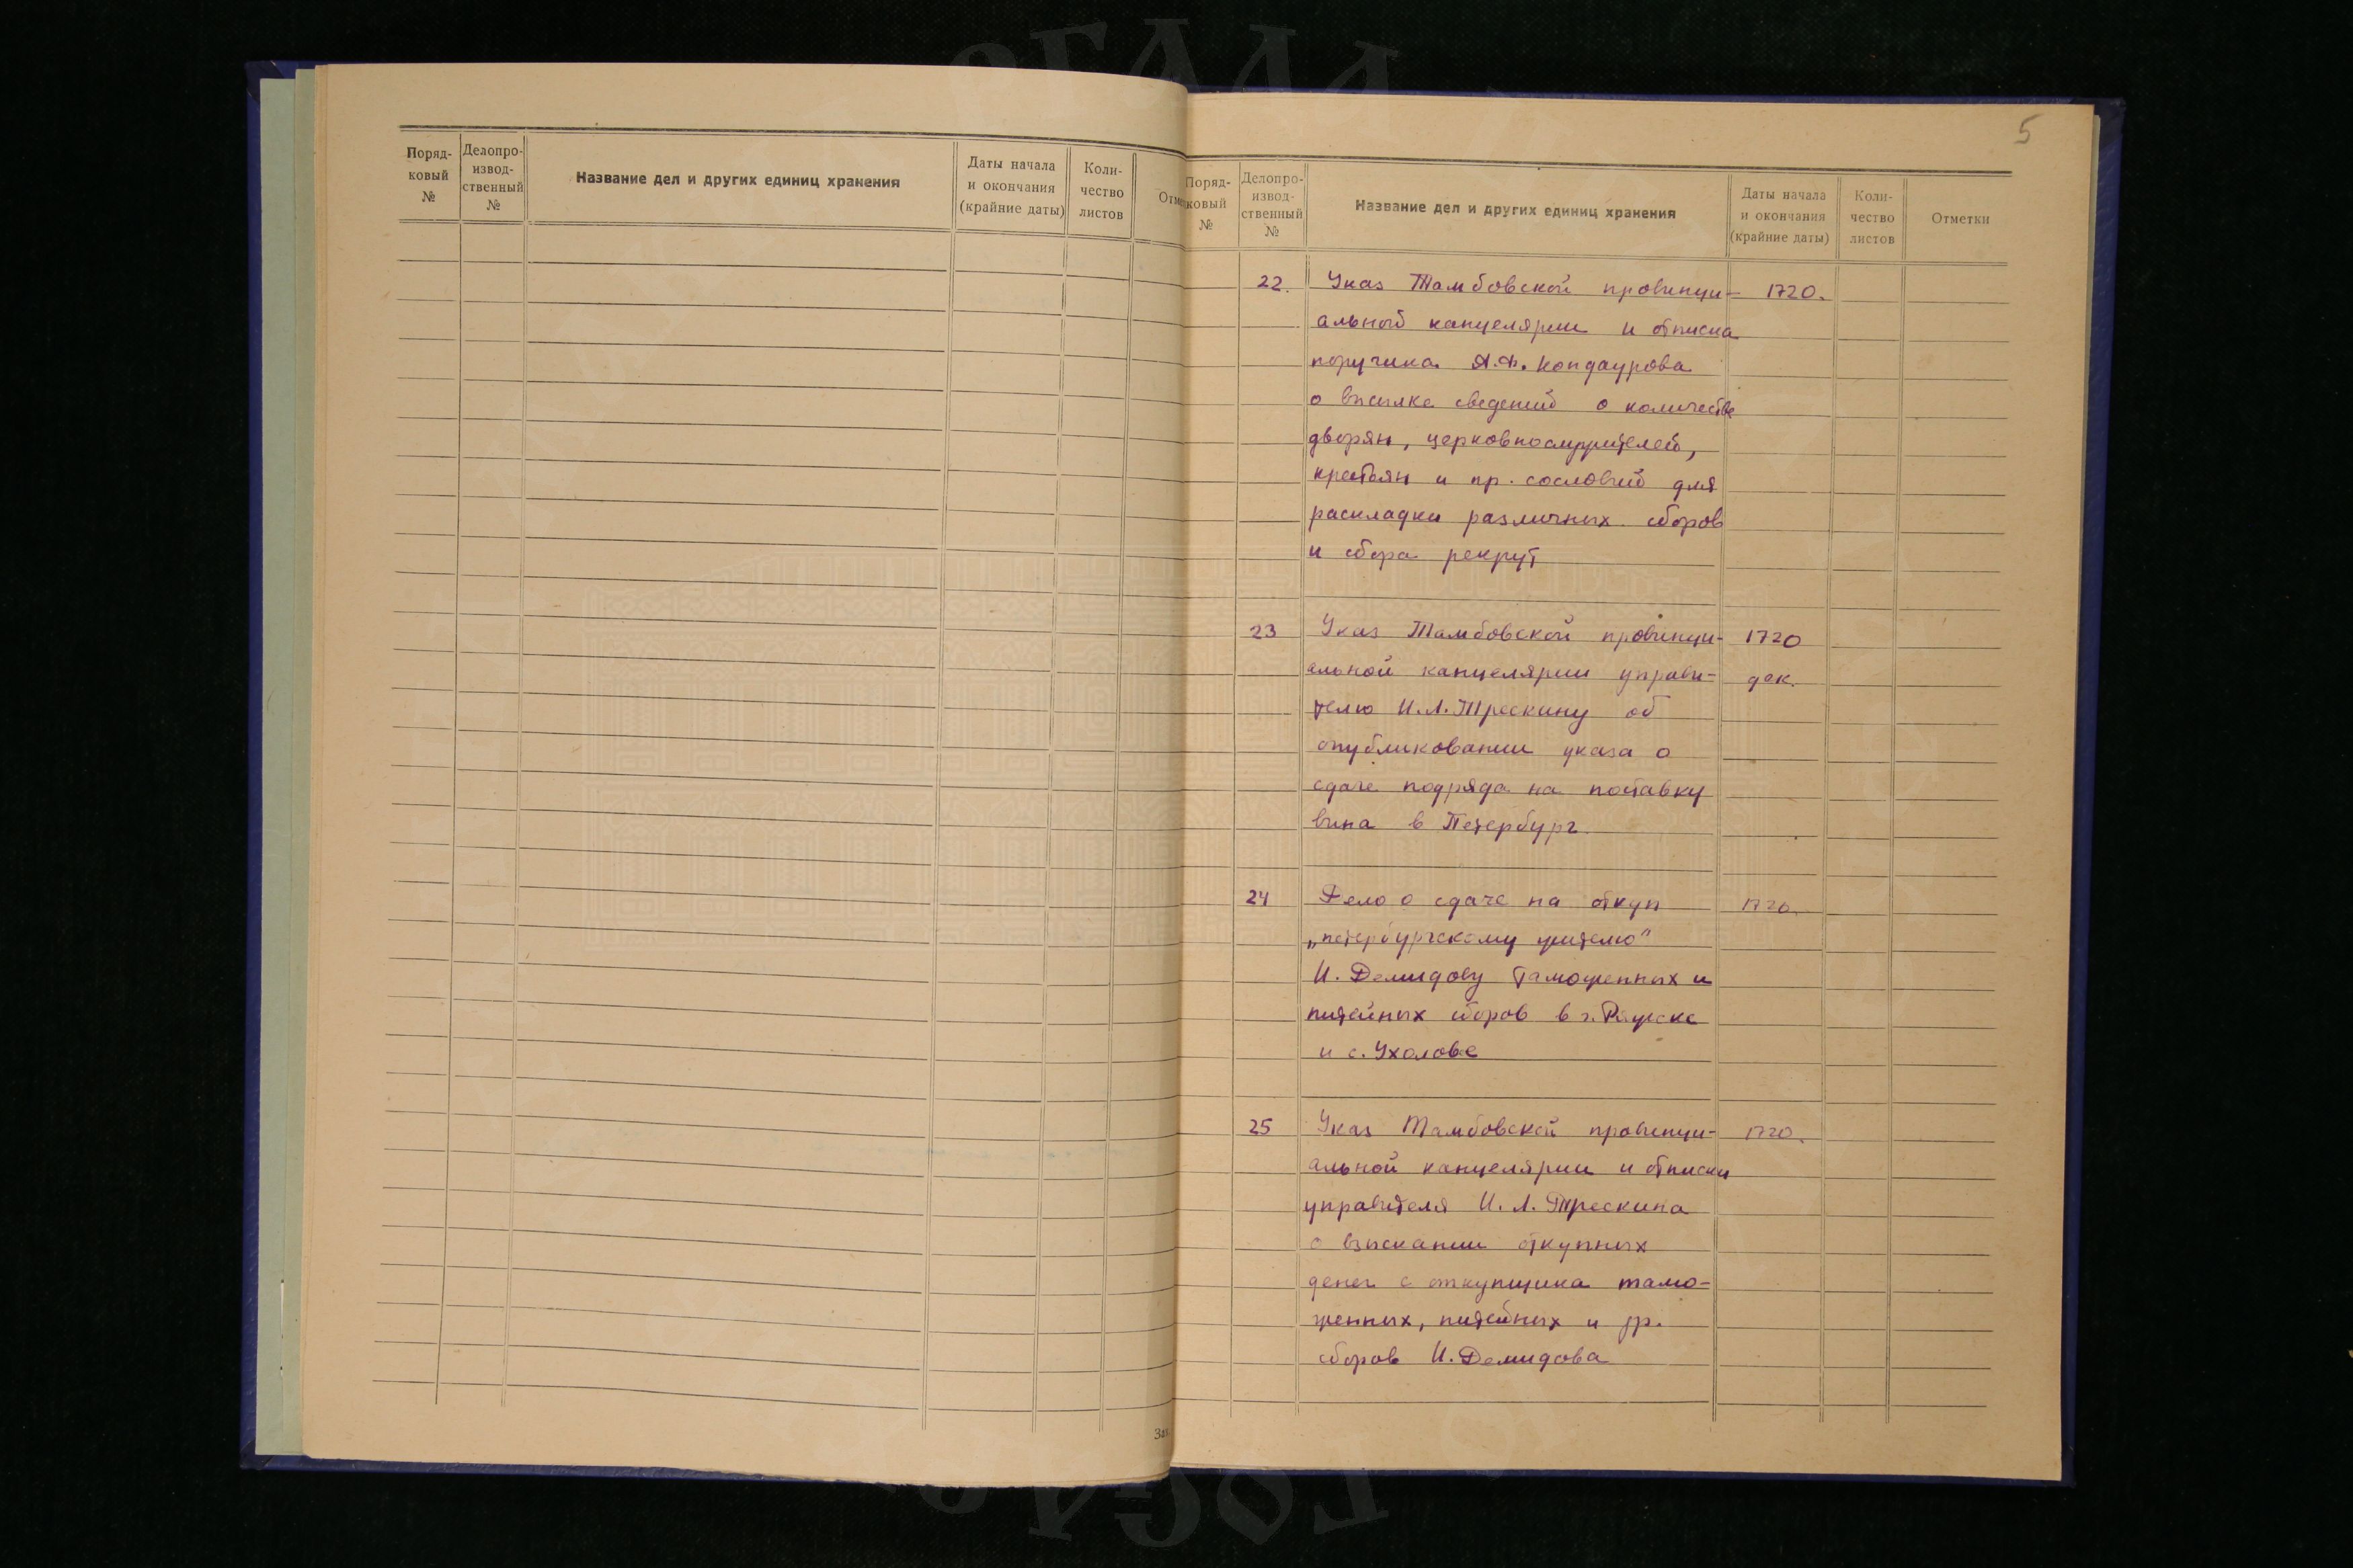 Поряд-
ковый
№
Делопро-
извод-
ственный
№
Название дел и других единиц хранения
Даты начала
и окончания
(крайние даты)
Коли-
чество
листов
5
Поряд-
ковый
№
Делопро-
извод-
ственный
№
Название дел и других единиц хранения
Даты начала
и окончания
(крайние даты)
Коли-
чество
листов
Отметки
22. Указ Тамбовской провинци- 1720.
альной канцелярии и отписка
поручика Я.Ф. Кондаурова
о высылке сведений о количестве
дворян, церковнослужителей,
крестьян и пр. сословий для
раскладки различных сборов
и сбора рекрут
23 Указ Тамбовской провинци- 1720
альной канцелярии управи- дек.
телю И.Л. Трескину об
опубликовании указа о
сдаче подряда на поставку
вина в Петербург
24 Дело о сдаче на откуп 1720.
„петербургскому жителю"
И. Демидову таможенных и
питейных сборов в г. Ряжске
и с. Ухолове
25 Указ Тамбовской провинци- 1720.
альной канцелярии и отписки
управителя И. Л. Трескина
о взыскании откупных
денег с откупщика тамо-
женных, питейных и др.
сборов И. Демидова